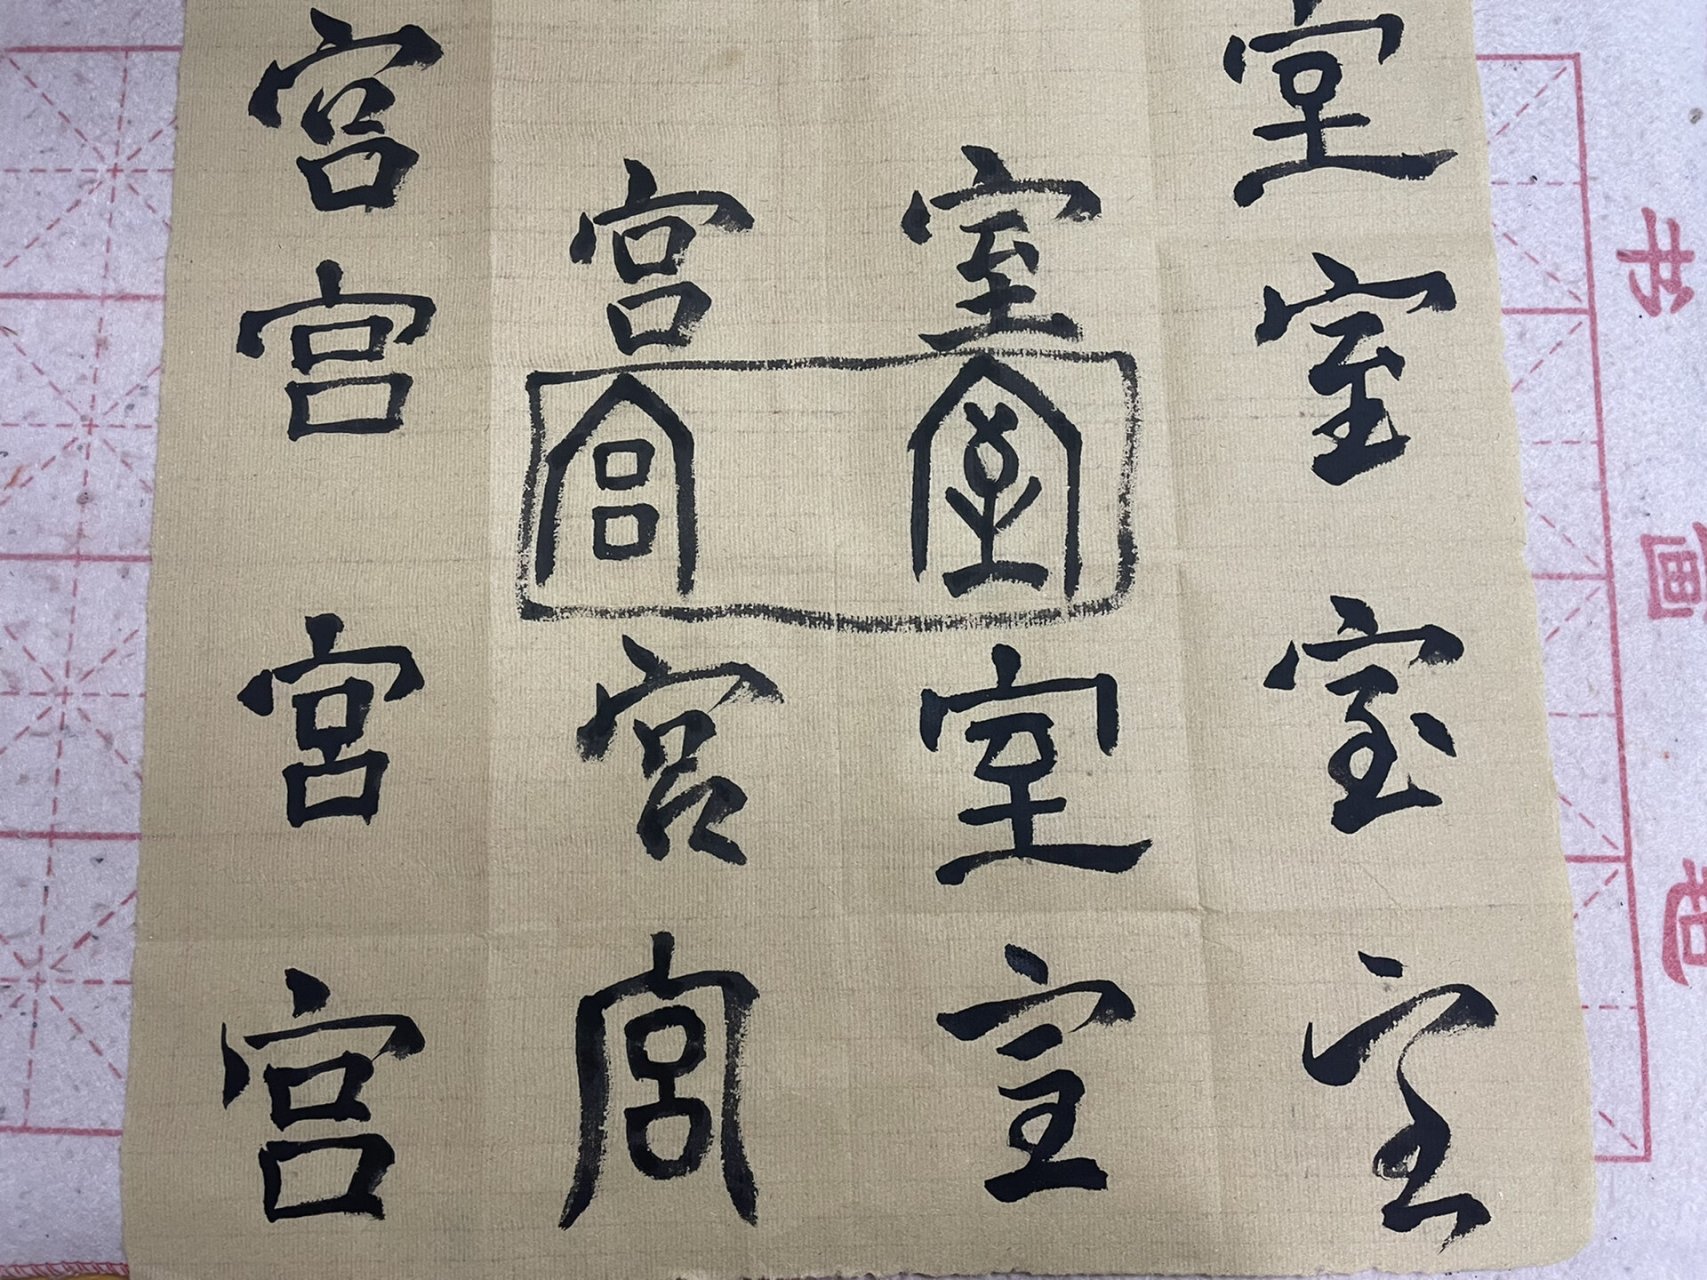 书画
室室室室
室室室室
宫宫宫宫
宫宫宫宫